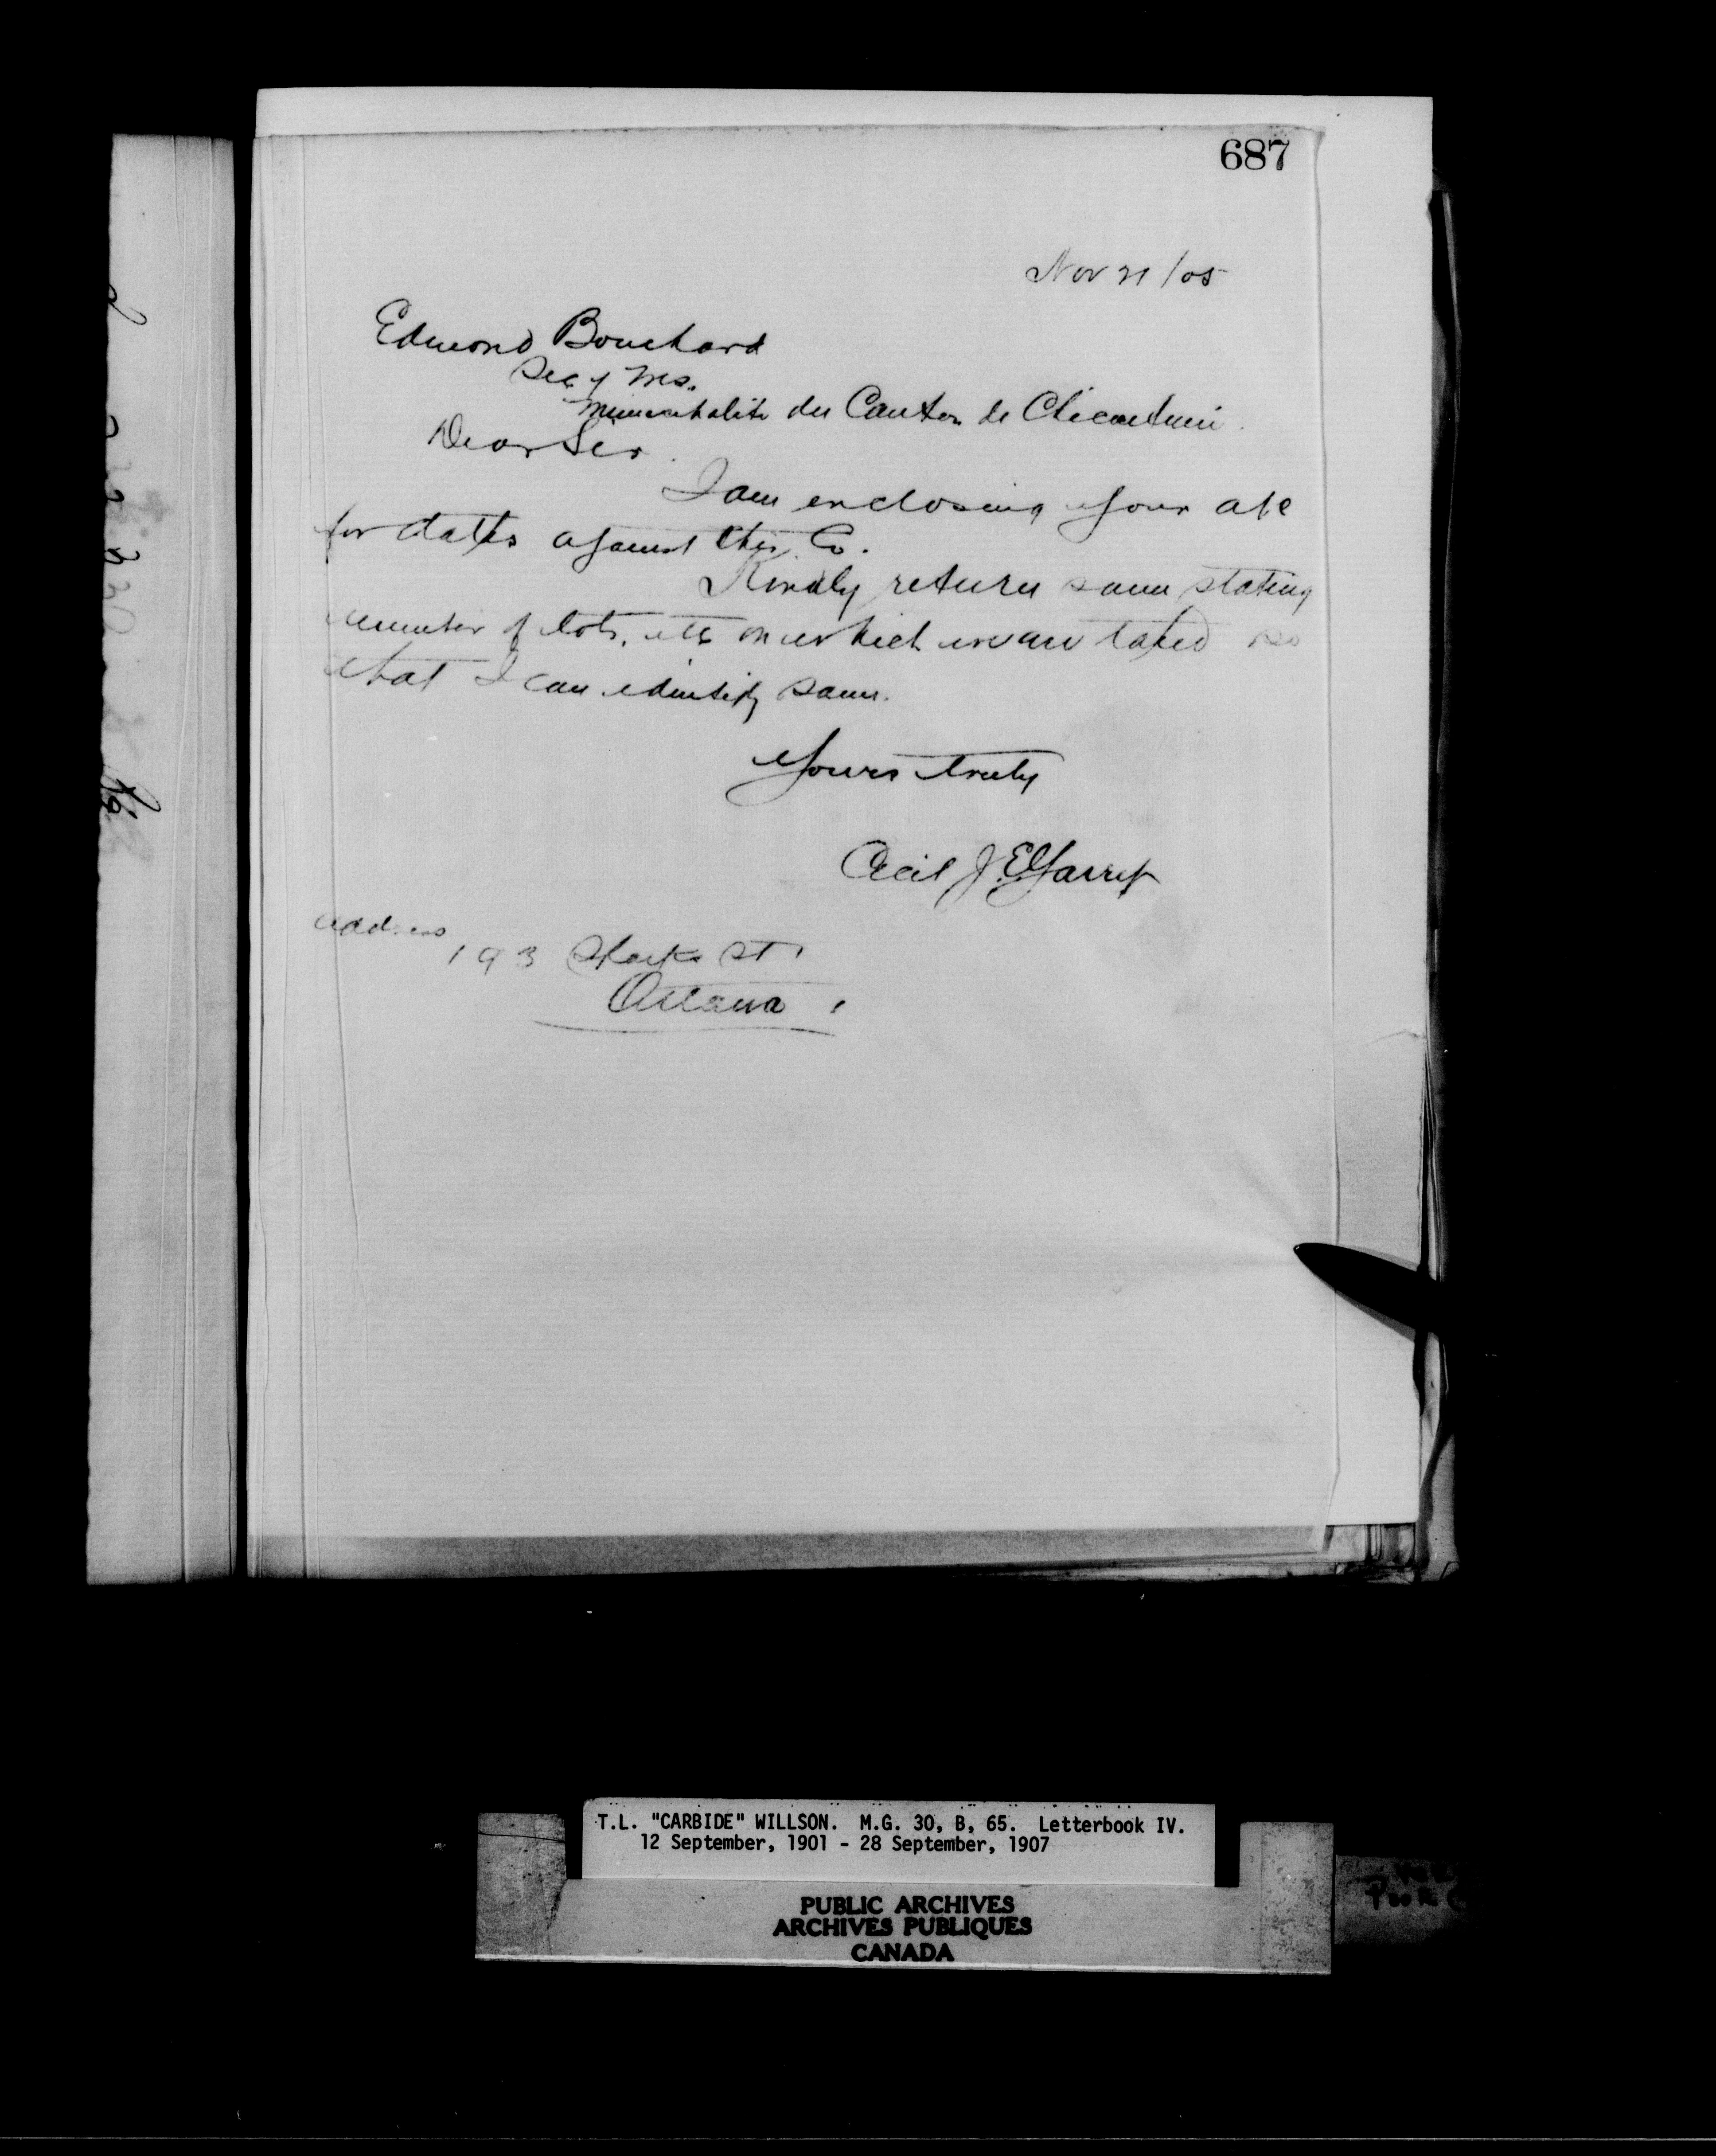 687
Nov 21/05
Edmond Bouchard
Secy Tres.
Municipalite du Canton de Chicoutimi.
Dear Sir.
I am enclosing your a/c
for taxes against this Co.
Kindly return same stating
number of lots, etc on which we are taxed so
that I can identify same.
Yours truly
Cecil J. E.
Address
193 Sparks St.
Ottawa.
T.L. "CARBIDE" WILLSON. M.G. 30, B, 65. Letterbook IV.
12 September, 1901 - 28 September, 1907
PUBLIC ARCHIVES
ARCHIVES PUBLIQUES
CANADA